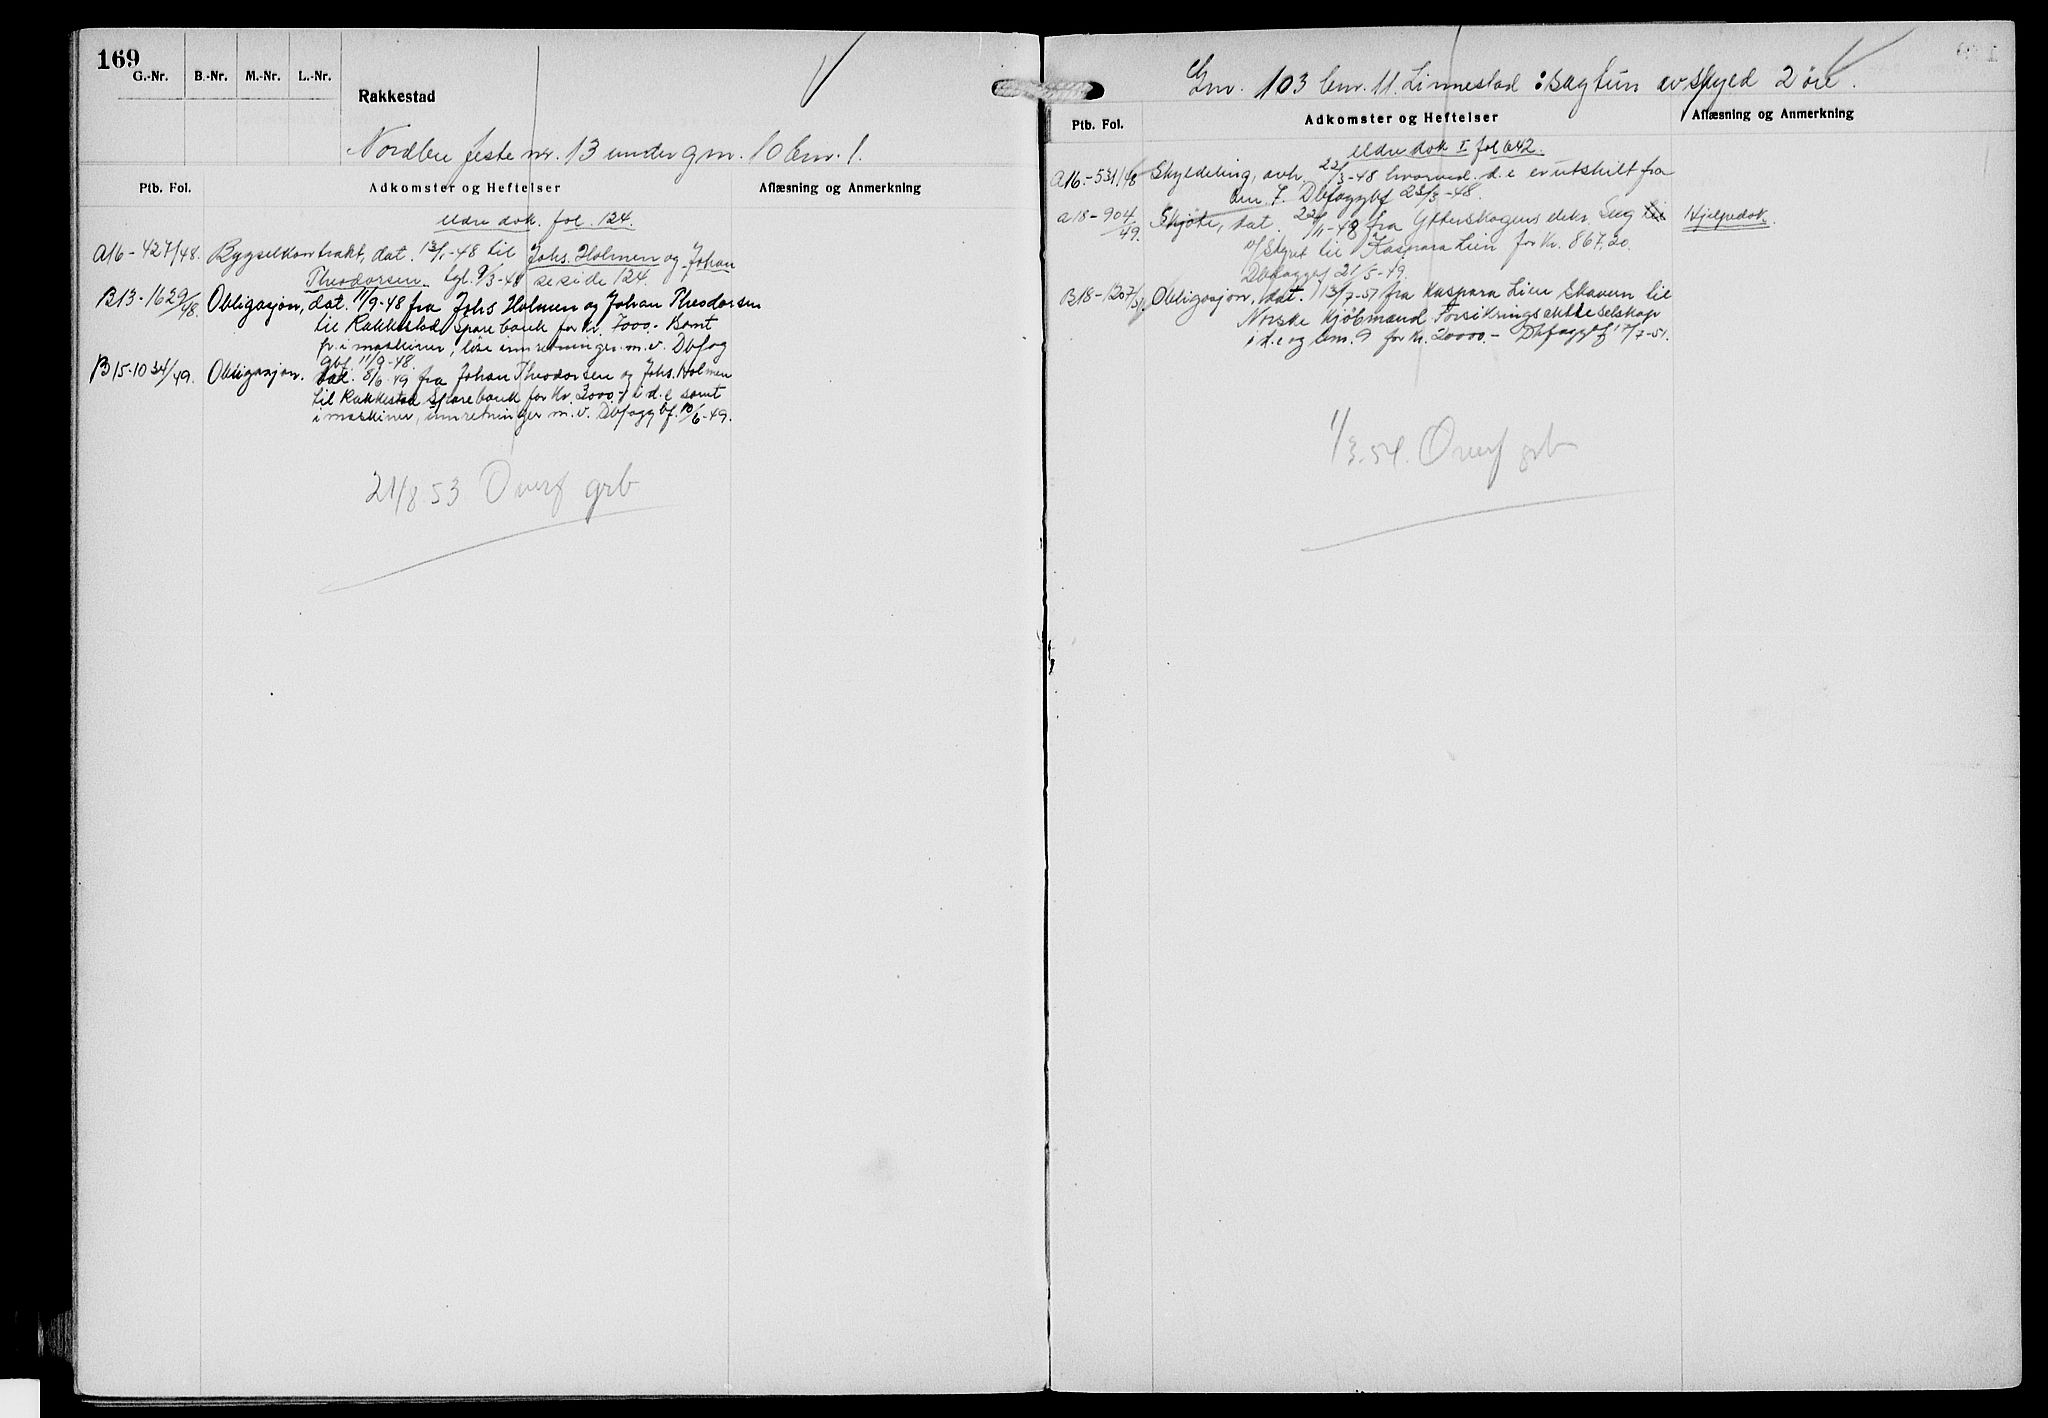 169
G.-Nr. B.-Nr. M.-Nr. L.-Nr.
Rakkestad
Nordbu feste nr. 13 under gnr. 10 bnr. 1.
Ptb. Fol. Adkomster og Heftelser Aflæsning og Anmerkning
eldre dok. fol. 124.
A16-427/48. Bygselkontrakt, dat. 13/1-48 til Johs. Holmen og Johan
Theodorsen. tgl. 9/3-48 se side 124.
B13-1629/48. Obligasjon, dat. 11/9-48 fra Johs Holmen og Johan Theodorsen
til Rakkestad Sparebank for kr. 7000.- Samt
pr. i maskiner, løse innretninger m.v. Dbfog
gbf. 11/9-48.
B15-1034/49. Obligasjon. dat. 8/6-49 fra Johan Theodorsen og Johs. Holmen
til Rakkestad Sparebank for kr. 3000.- i d.e samt
i maskiner, innretninger m.v. Dbfoggbf. 10/6-49.
21/8 53 Overf grb
Gnr. 103 bnr. 11. Linnestad : Sagtun av skyld 2 øre.
Ptb. Fol. Adkomster og Heftelser Aflæsning og Anmerkning
eldre dok I fol 642.
A16.-531/48 Skyldeling, avh. 22/3-48 hvorved d.e er utskilt fra
bnr. 7. Dbfoggbf 23/3-48.
A18-904/49. Skjøte, dat. 22/11-48 fra Ytterskogens elekr. Sag til Hjelpedok.
v/Styret til Kaspara Lien for kr. 867,20.
Dbfoggbf 21/5-49.
B18-1207/51. Obligasjon, dat. 13/7-51 fra Kaspara Lien Skavern til
Norske Kjøbmænd Forsikringsaktieselskap
i d.e og bnr. 9 for kr. 20000.- Dbfoggbf 17/7-51.
1/3.54. Overf grb